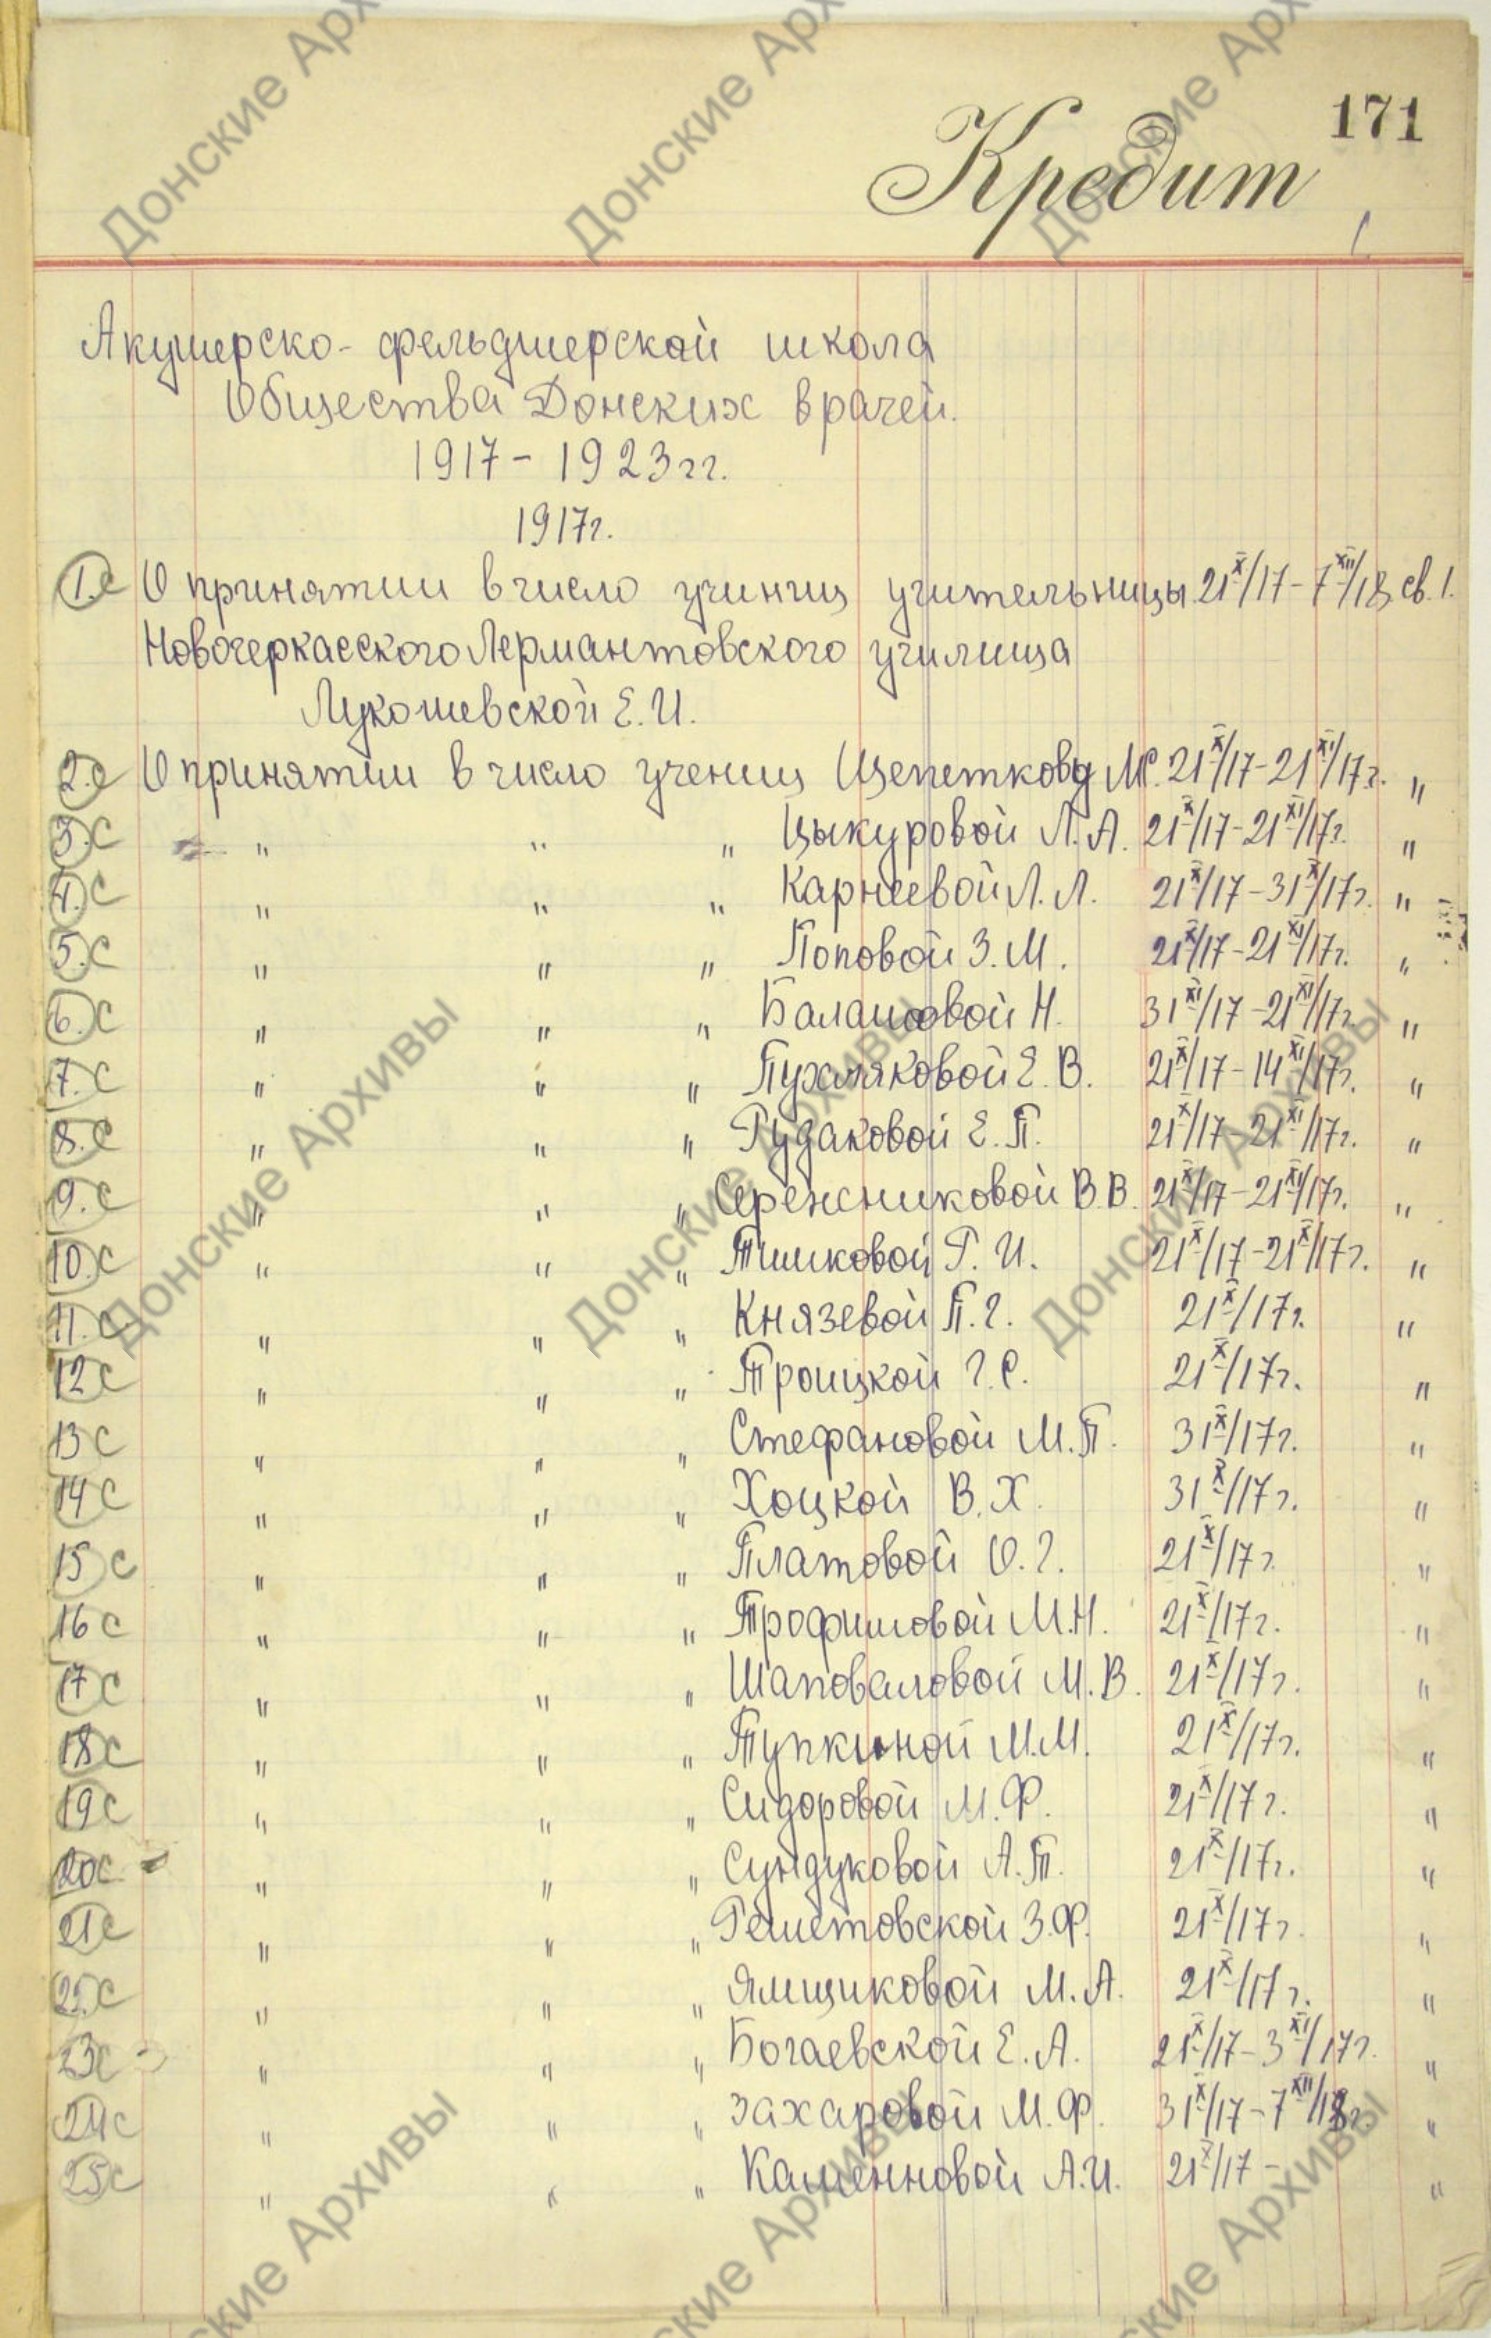 171
Кредит
Акушерско-фельдшерской школа
Общества Донских врачей.
1917-1923гг.
1917г.
1.с О принятии в число учениц учительницы 21X/17-7XII/18 св.1.
Новочеркасского Лермантовского училища
Лукошевской Е.И.
2.с О принятии в число учениц Щепетковой М.С. 21X/17-21XI/17г. "
3.с " " " Цыкуровой Л.А. 21X/17-21XI/17г. "
4.с " " " Карнеевой Л.Л. 21X/17-31X/17г. "
5.с " " " Поповой З.М. 21X/17-21XI/17г. "
6.с " " " Балашовой Н. 31XI/17-21XI/17г. "
7.с " " " Пухляковой Е.В. 21X/17-14XI/17г. "
8.с " " " Рудаковой Е.П. 21X/17-21XI/17г. "
9.с " " " Сережниковой В.В. 21X/17-21XI/17г. "
10.с " " " Тишковой Р.И. 21X/17-21X/17г. "
11.с " " " Князевой П.Г. 21X/17г. "
12с " " " Троицкой Г.С. 21X/17г. "
13с " " " Стефановой М.П. 31X/17г. "
14с " " " Хоцкой В.Х. 31X/17г. "
15с " " " Платовой О.Г. 21X/17г. "
16с " " " Трофимовой М.Н. 21X/17г. "
17с " " " Шаповаловой М.В. 21X/17г. "
18с " " " Тупкиной М.М. 21X/17г. "
19с " " " Сидоровой М.Ф. 21X/17г. "
20с " " " Сундуковой А.Т. 21X/17г. "
21с " " " Решетовской З.Ф. 21X/17г. "
22.с " " " Ямщиковой М.А. 21X/17г. "
23с " " " Богаевской Е.А. 21X/17-3XI/17г. "
24с " " " Захаровой М.Ф. 31X/17-7XII/18г. "
25с " " " Каменновой А.И. 21X/17- "
Донские Архивы